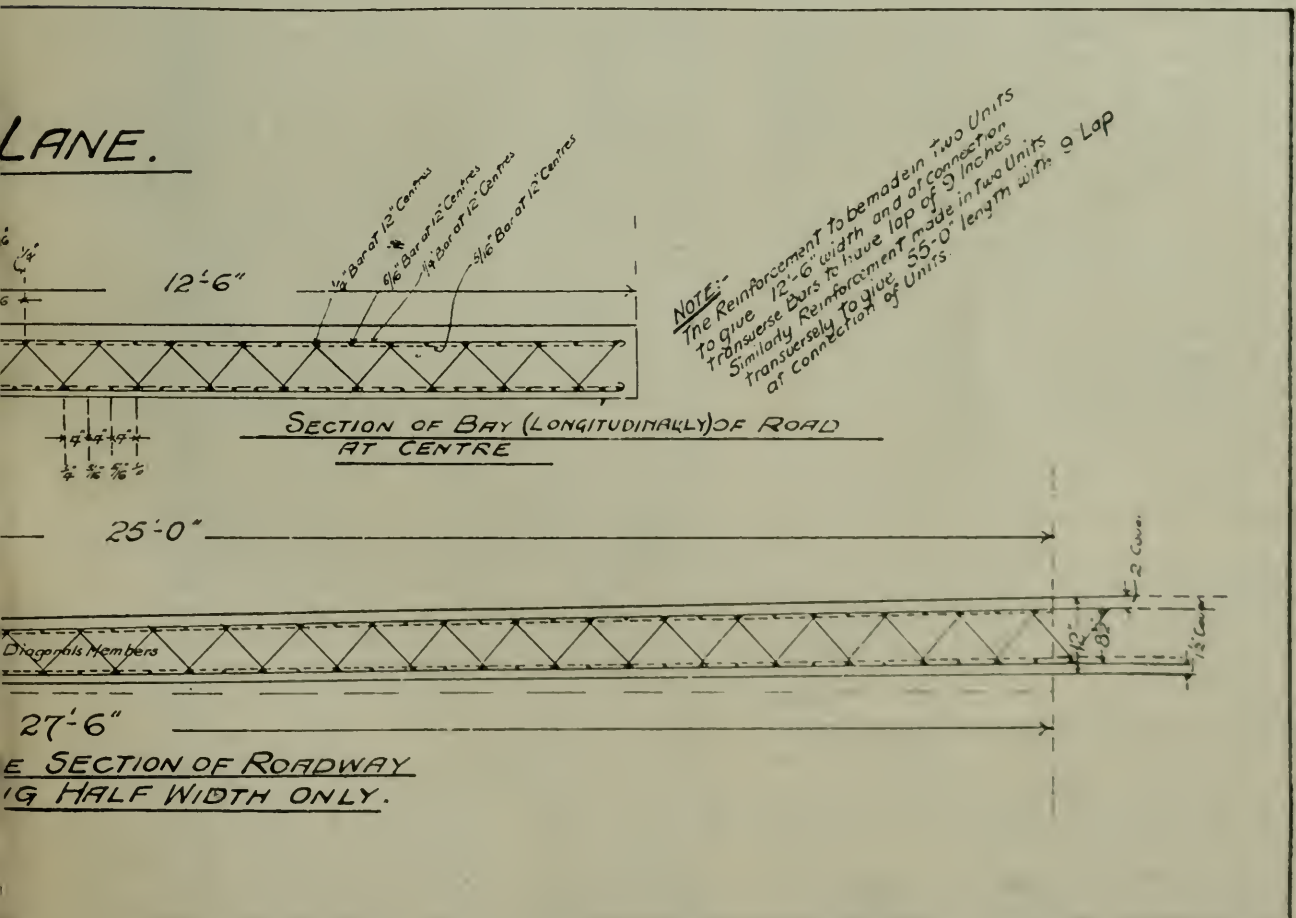 LANE.
1/4" Bar at 12" Centres
5/16" Bar at 12" Centres
1/4" Bar at 12" Centres
5/16" Bar at 12" Centres
12'-6"
NOTE:-
The Reinforcement to be made in Two Units
to give 12'-6" width and at connection
Transverse Bars to have lap of 9 Inches
Similarly Reinforcement made in Two Units
transversely to give 55'-0" length with 9" Lap
at connection of Units.
4" 4" 4"
1/4" 5/16" 5/16" 1/4"
SECTION OF BAY (LONGITUDINALLY) OF ROAD
AT CENTRE
25'-0"
2" Cover
Diagonals Members
12"
8½"
1½" Cover
27'-6"
E SECTION OF ROADWAY
IG HALF WIDTH ONLY.